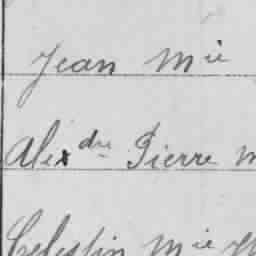 Jean Mie
Alexdre Pierre M
Celestin Mie